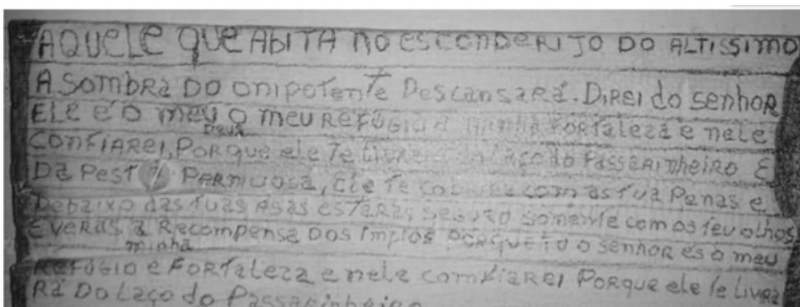 AQUELE QUE ABITA NO ESCONDERIJO DO ALTISSIMO
A SOMBRA DO ONIPOTENTE DESCANSARÁ. DIREI do senhor
ELE é o meu o meu REFÚGIO a minha FORTALEZA e nele
Deus
CONFIAREI, PORQUE ele Te LIVRARA do laço do PassARinheiro E
Da Peste PERNICIOSA, Ele Te cobrira com as tua Penas e
Debaixo das suas asas estaras seguro somente com os teu olhos
E veras a Recompensa Dos Impios PORQUE tu o senhor és o meu
minha
REFÚGIO e FORTaleza e nele comfiarei PORQUE ele Te Livra
Rá Do Laço do Passarinheiro